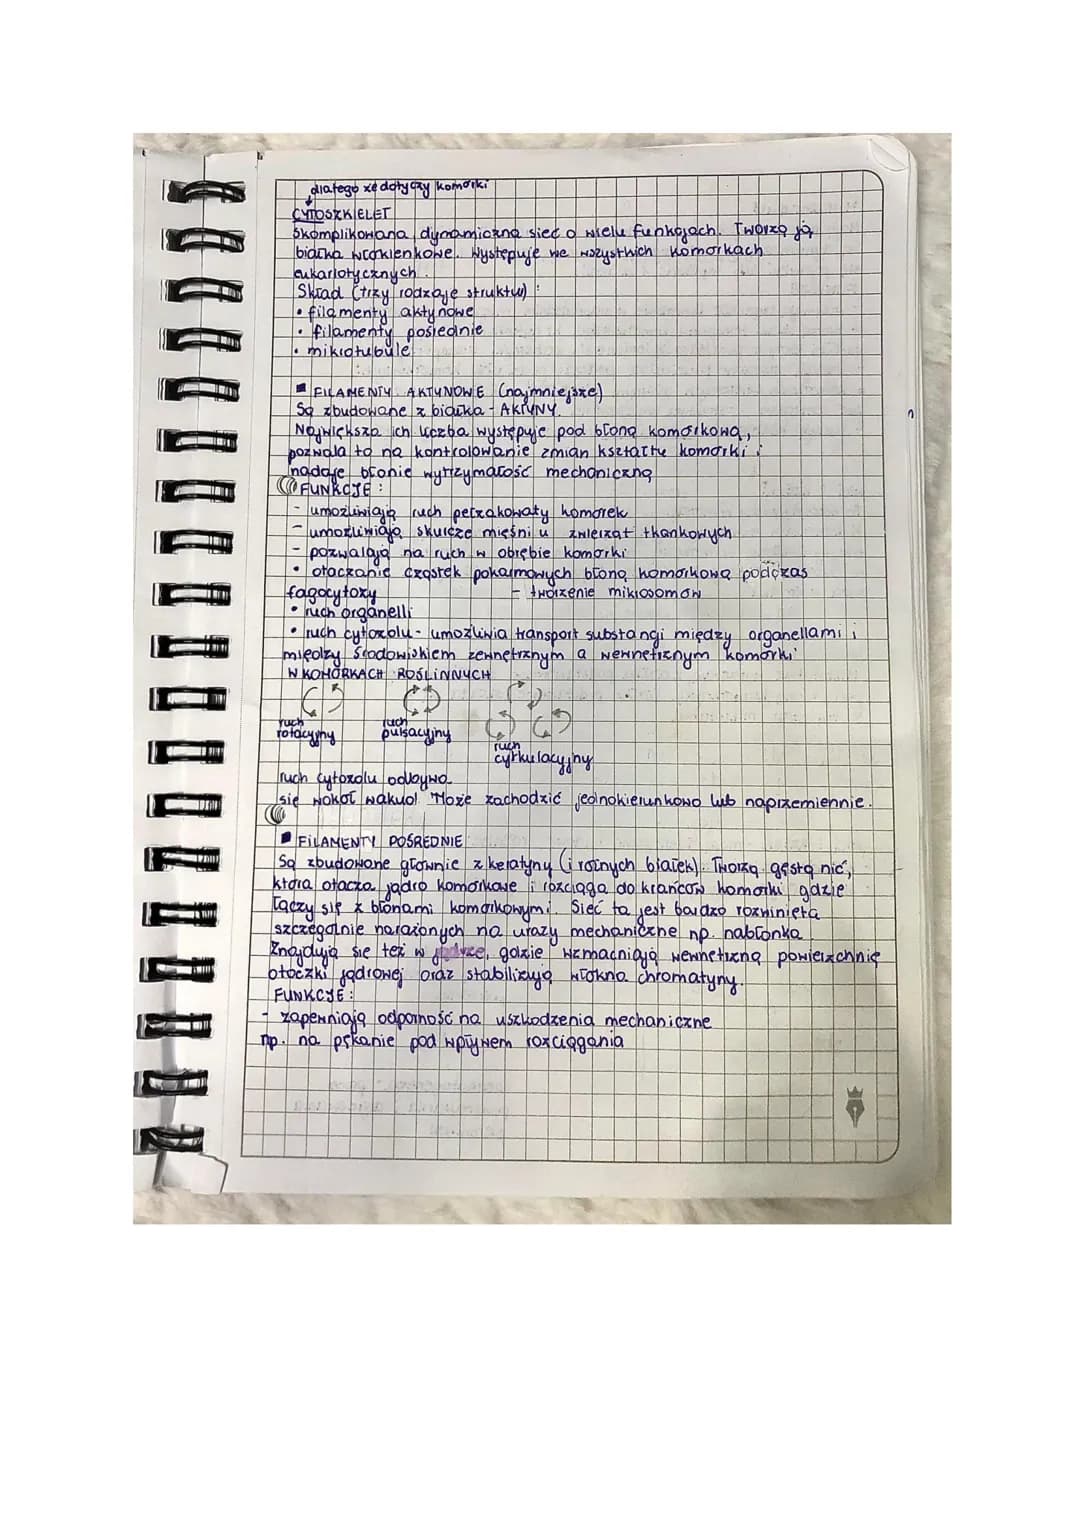 dlatego że dotyczy komórki
CYTOSZKIELET
Skomplikowana, dynamiczna sieć o wielu funkcjach. Tworzą ją
białka włókienkowe. Występuje we wszystkich komórkach
eukariotycznych.
Skład (trzy rodzaje struktur):
• filamenty aktynowe
• filamenty pośrednie
• mikrotubule
■ FILAMENTY AKTYNOWE (najmniejsze)
Są zbudowane z białka - AKTYNY.
Największa ich liczba występuje pod błoną komórkową,
pozwala to na kontrolowanie zmian kształtu komórki i
nadaje błonie wytrzymałość mechaniczną
FUNKCJE:
- umożliwiają ruch pełzakowaty komórek
- umożliwiają skurcze mięśni u zwierząt tkankowych
- pozwalają na ruch w obrębie komórki
• otaczanie cząstek pokarmowych błoną komórkową podczas
fagocytozy - tworzenie mikrosomów
• ruch organelli
• ruch cytozolu - umożliwia transport substancji między organellami i
między środowiskiem zewnętrznym a wewnętrznym komórki
W KOMÓRKACH ROŚLINNYCH
ruch rotacyjny
ruch pulsacyjny
ruch cyrkulacyjny
ruch cytozolu odbywa
się wokół wakuol. Może zachodzić jednokierunkowo lub naprzemiennie.
■ FILAMENTY POŚREDNIE
Są zbudowane głównie z keratyny (i różnych białek). Tworzą gęstą nić,
która otacza jądro komórkowe i rozciąga do krańców komórki gdzie
łączy się z błonami komórkowymi. Sieć ta jest bardzo rozwinięta
szczególnie narażonych na urazy mechaniczne np. nabłonka
Znajdują się też w jądrze, gdzie wzmacniają wewnętrzną powierzchnię
otoczki jądrowej oraz stabilizują włókna chromatyny.
FUNKCJE:
- zapewniają odporność na uszkodzenia mechaniczne
np. na pękanie pod wpływem rozciągania